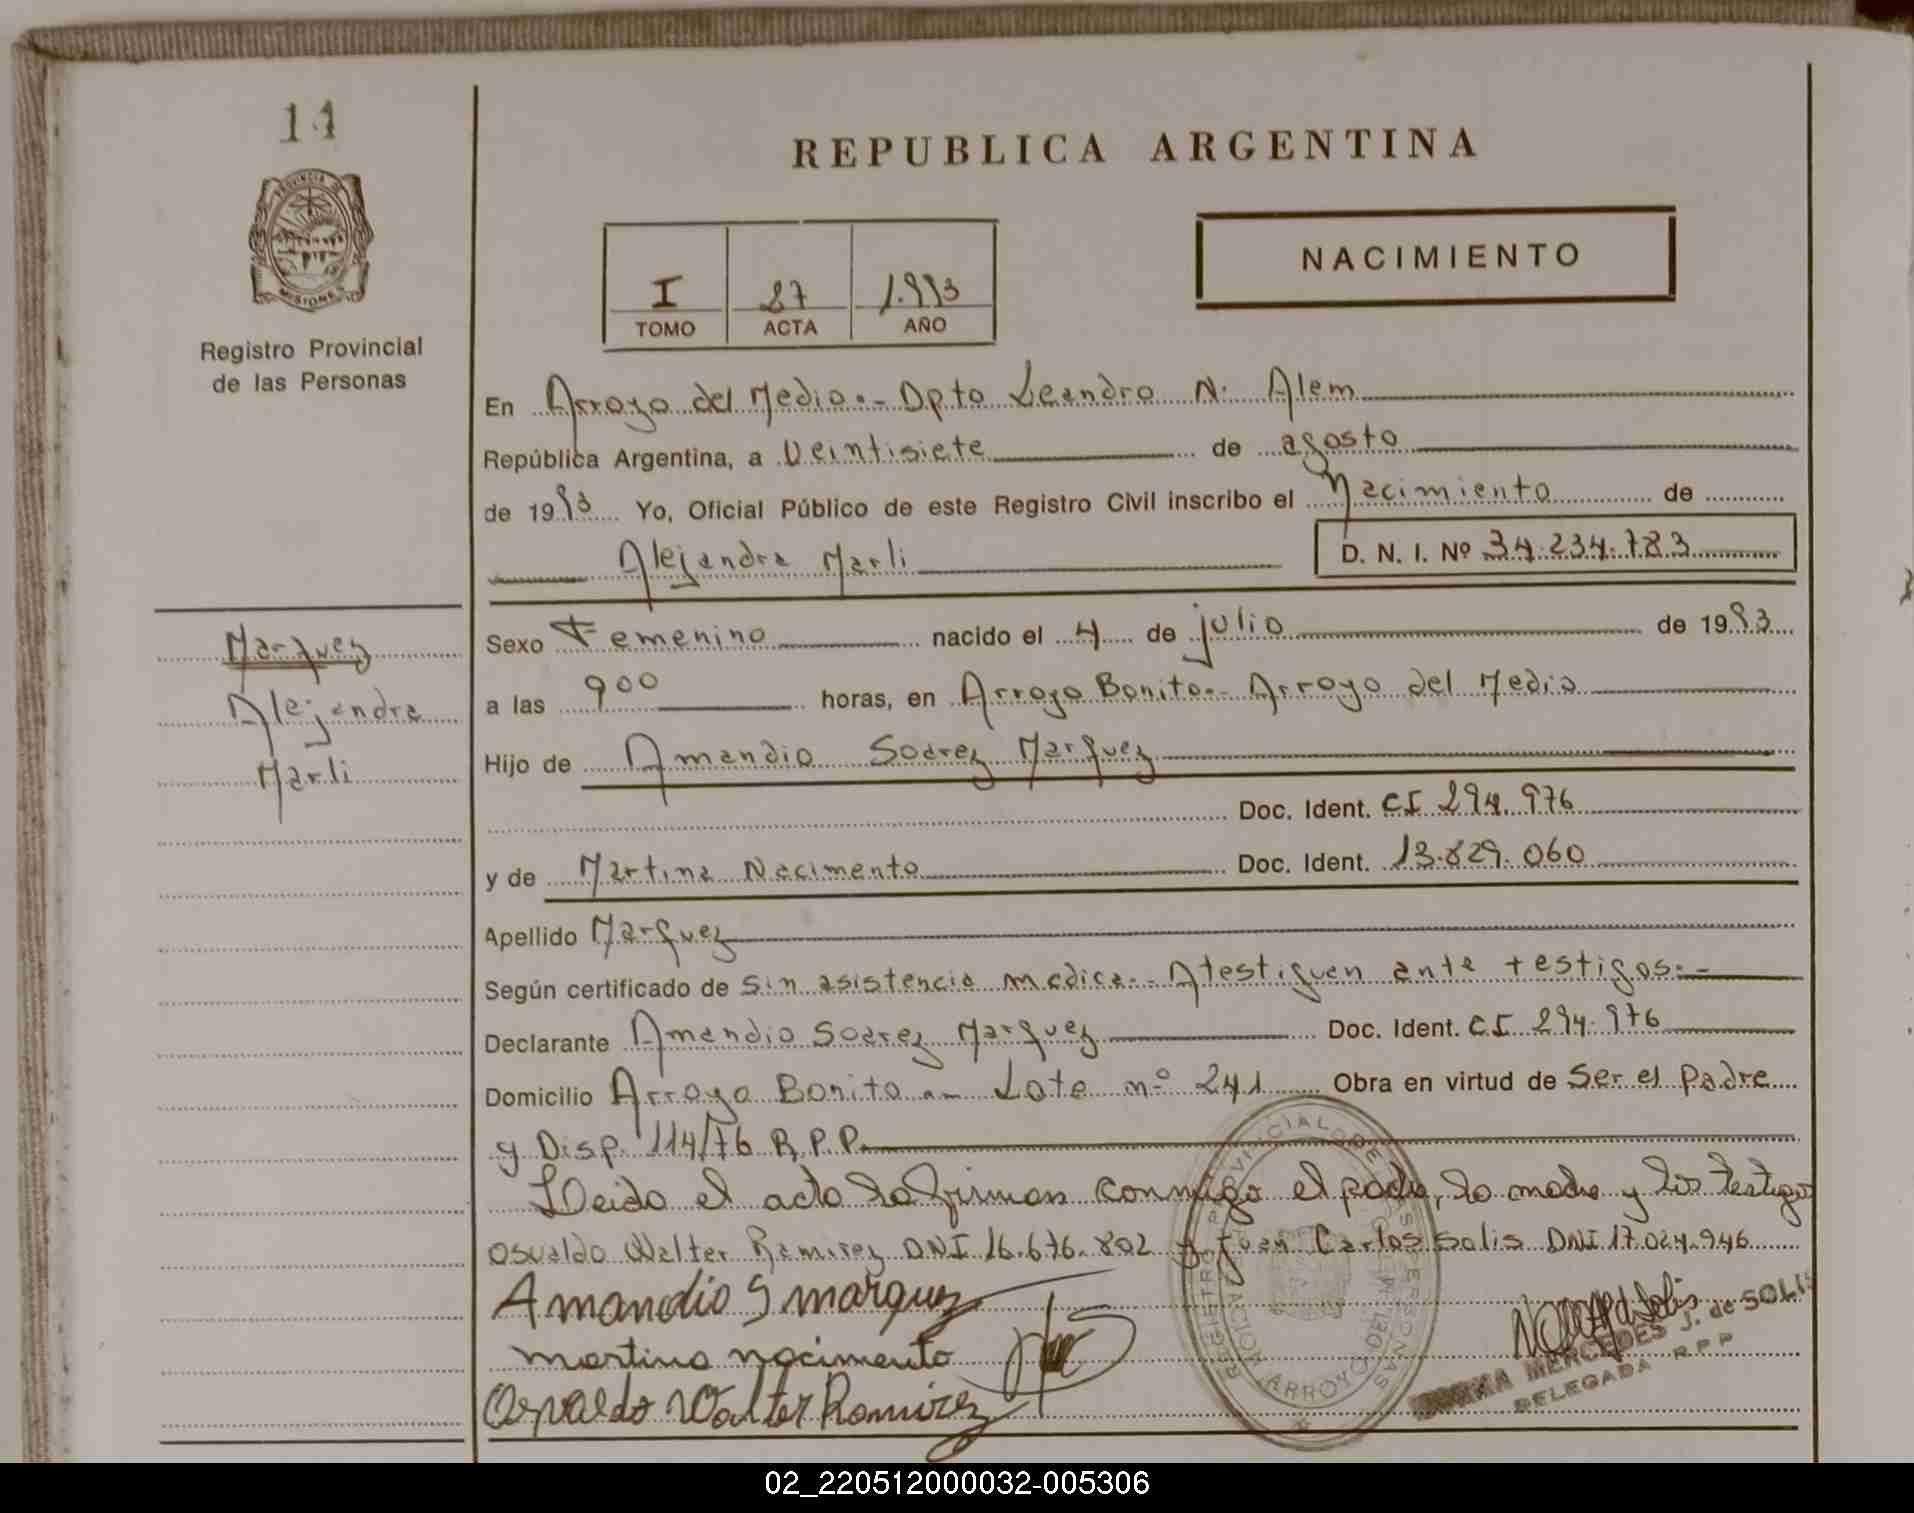 14
PROVINCIA DE
MISIONES
Registro Provincial
de las Personas
REPUBLICA ARGENTINA
I 27 1.993
TOMO ACTA AÑO
NACIMIENTO
En Arroyo del Medio.- Dpto Leandro N. Alem
República Argentina, a veintisiete de agosto
de 1993 Yo, Oficial Público de este Registro Civil inscribo el Nacimiento de
Alejandra Marli D. N. I. Nº 34.234.783
Marquez
Alejandra
Marli
Sexo Femenino nacido el 4 de julio de 1993
a las 900 horas, en Arroyo Bonito.- Arroyo del Medio
Hijo de Amandio Soarez Marquez
Doc. Ident. CI 294.976
y de Martina Nacimento Doc. Ident. 13.829.060
Apellido Marquez
Según certificado de sin asistencia medica.- Atestiguen ante testigos.-
Declarante Amandio Soarez Marquez Doc. Ident. CI 294.976
Domicilio Arroyo Bonito.- Lote nº 241 Obra en virtud de Ser el padre
y Disp. 114/76 R.P.P.
Leido el acta la firman conmigo el padre, la madre y los testigos
Osvaldo Walter Ramirez DNI 16.676.802 y Juan Carlos Solis DNI 17.024.946
Amandio S marquez
martina nacimento
Osvaldo Walter Ramirez
REGISTRO PROVINCIAL DE LAS PERSONAS
ARROYO DEL MEDIO
MERCEDES J. de SOLIS
DELEGADA R.P.P
02_220512000032-005306